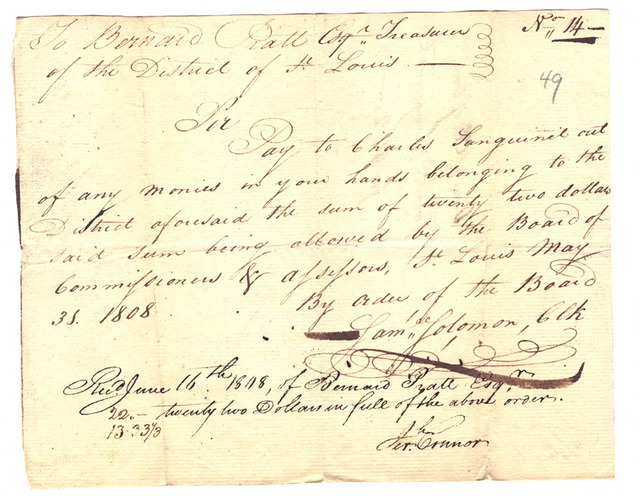 To Bernard Pratt Esqr. Treasurer
of the District of St Louis —
No 14 —
49
Sir
Pay to Charles Sanguinet out
of any monies in your hands belonging to the
District aforesaid the sum of twenty two dollars
said sum being allowed by the Board of
Commissioners & Assessors, St Louis May
31. 1808
By order of the Board
Saml. Solomon, Clk
Recd June 16th 1808, of Bernard Pratt Esqr.
22.— twenty two Dollars in full of the above order.
13.33⅓
Jerh Connor